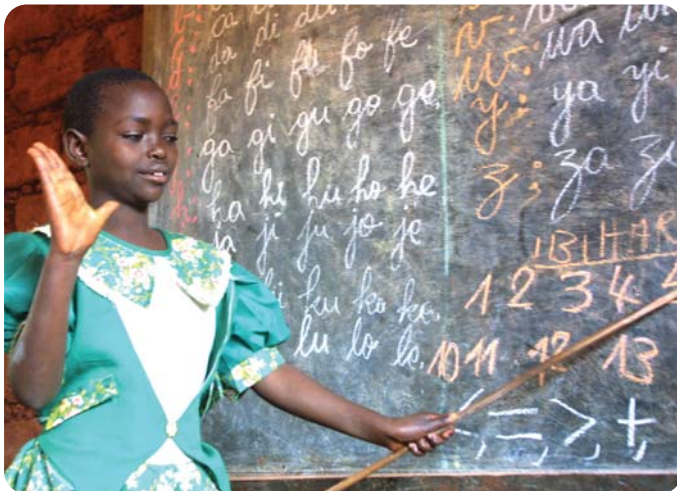 da di
fa fi fu fo fe.
ga gi gu go ge,
h: ha hi hu ho he
ja ji ju jo je
ku ko ke,
lu lo le,
v:
w: wa
y: ya yi
z: za
IBIHAR
1 2 3 4
10 11 12 13
=, >, +,